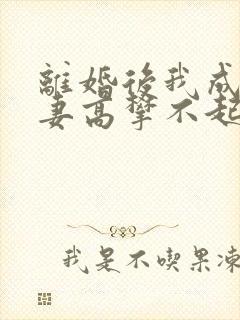 離婚後我成
妻高攀不起
我是不喫果凍